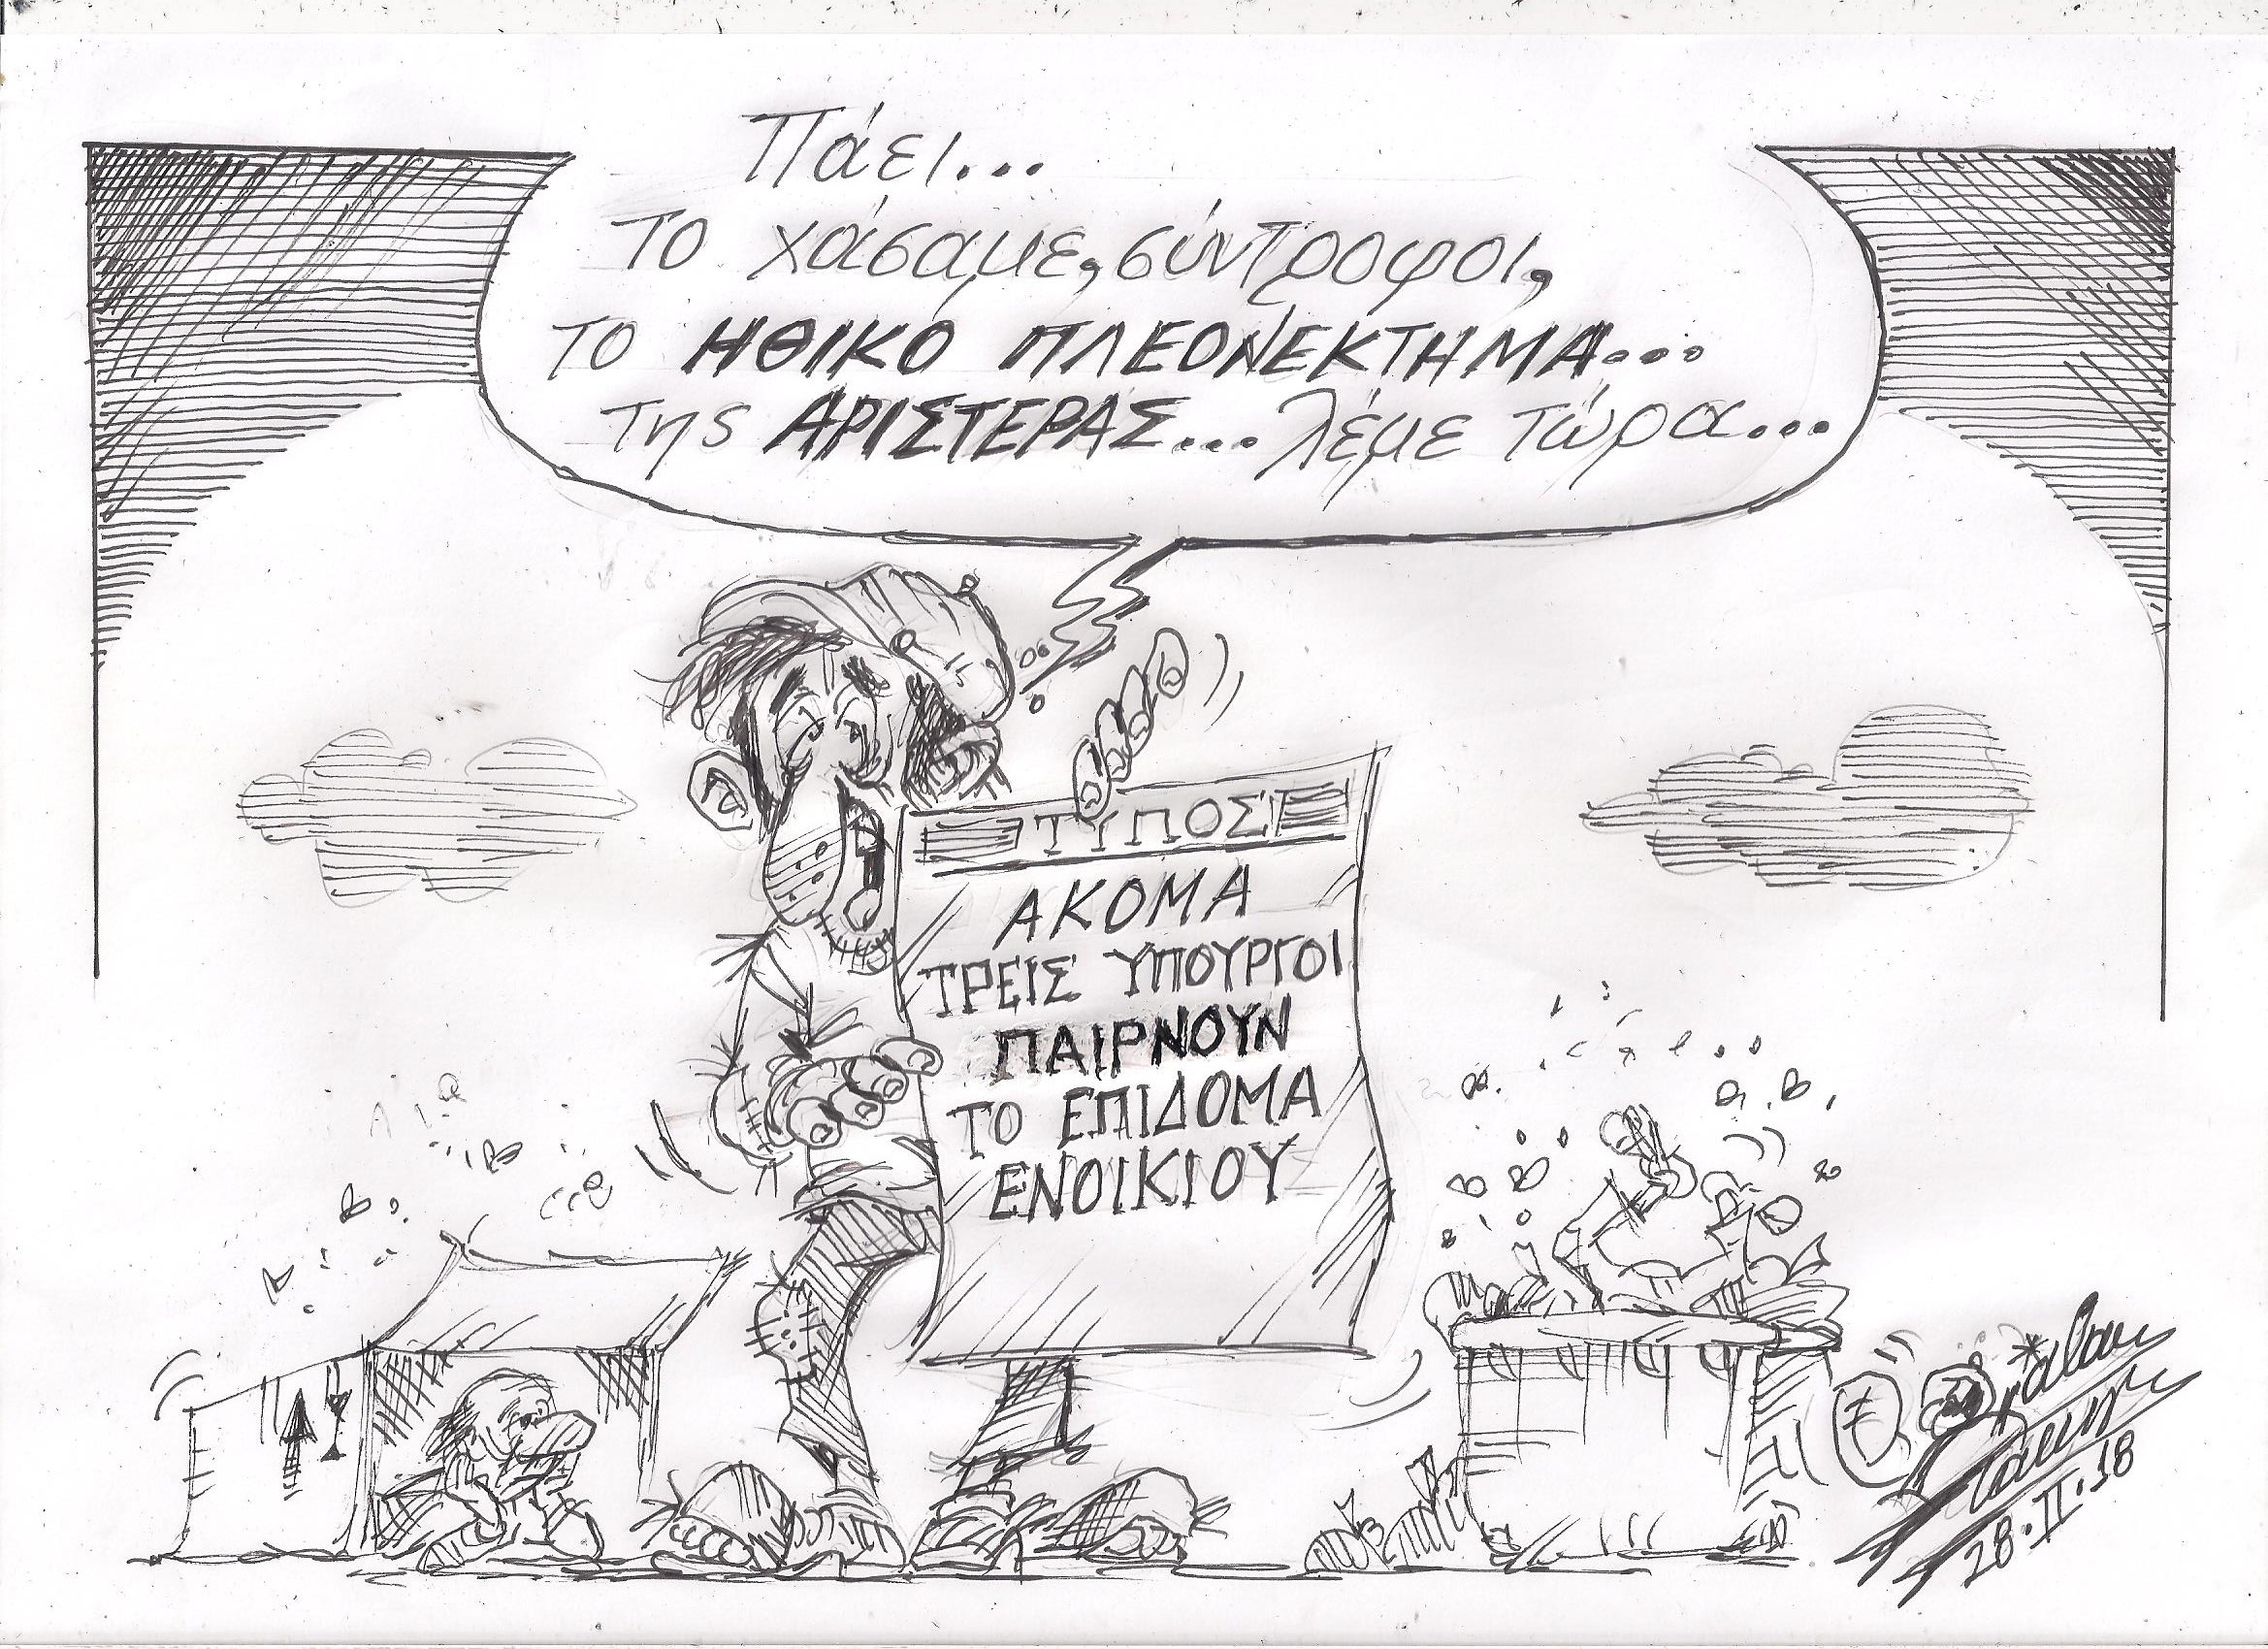 Πάει...
το χάσαμε, σύντροφοι,
το ΗΘΙΚΟ ΠΛΕΟΝΕΚΤΗΜΑ...
της ΑΡΙΣΤΕΡΑΣ... λέμε τώρα...
ΤΥΠΟΣ
ΑΚΟΜΑ
ΤΡΕΙΣ ΥΠΟΥΡΓΟΙ
ΠΑΙΡΝΟΥΝ
ΤΟ ΕΠΙΔΟΜΑ
ΕΝΟΙΚΙΟΥ
28.II.18